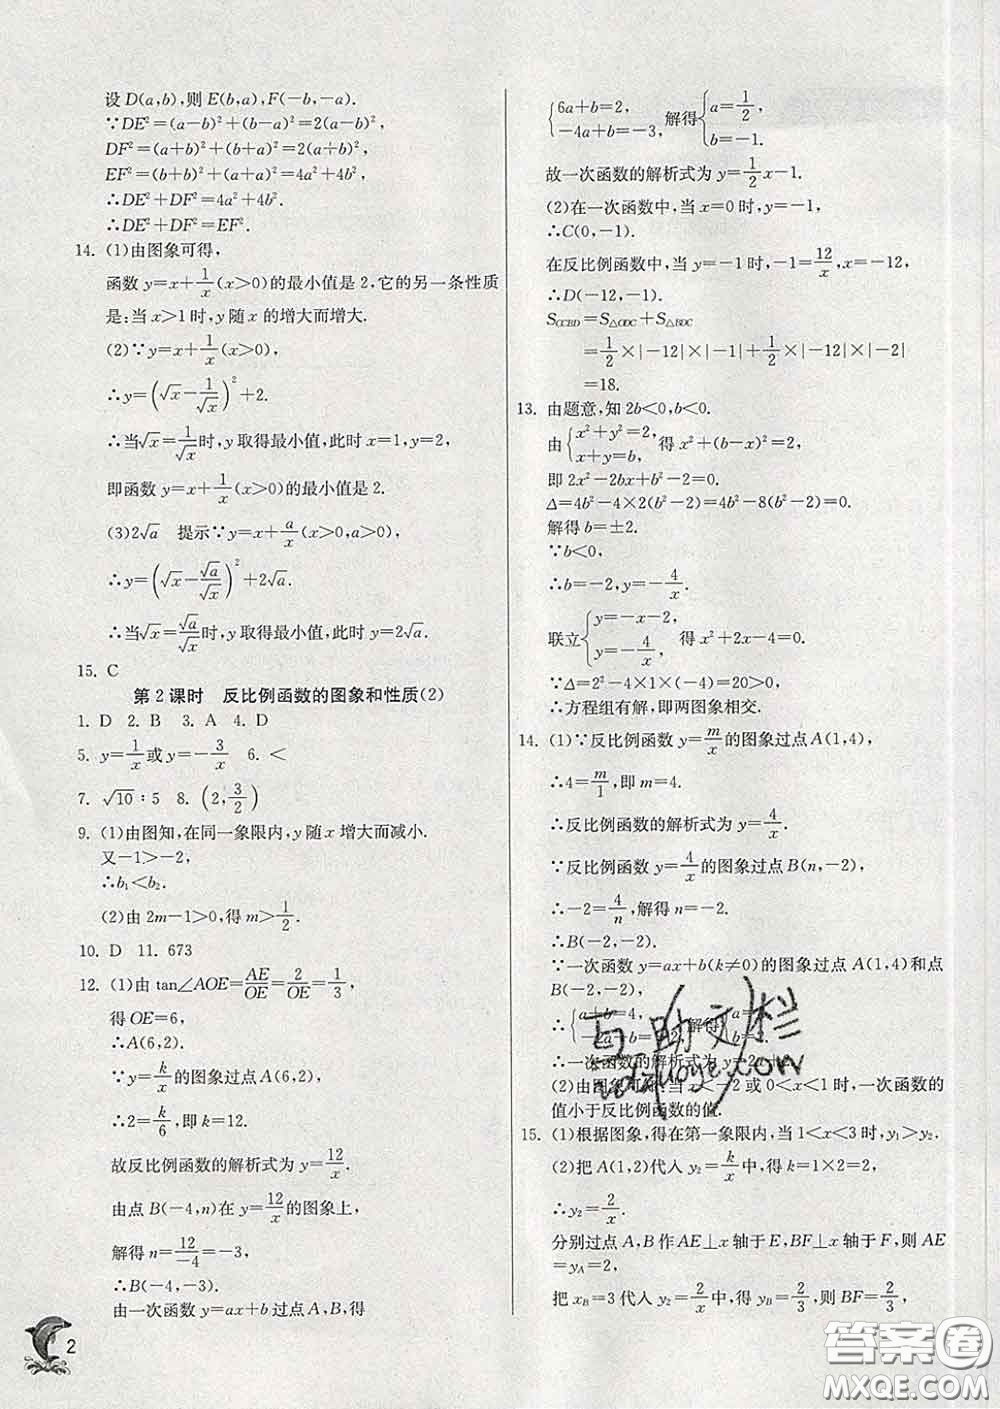 设 D(a,b),则 E(b,a),F(-b,-a).
∵DE²=(a-b)²+(b-a)²=2(a-b)²,
DF²=(a+b)²+(b+a)²=2(a+b)²,
EF²=(b+b)²+(a+a)²=4a²+4b²,
∴DE²+DF²=4a²+4b².
∴DE²+DF²=EF².
14. (1)由图象可得,
函数 y=x+1/x(x>0)的最小值是 2,它的另一条性质
是:当 x>1 时,y 随 x 的增大而增大.
(2)∵y=x+1/x(x>0),
∴y=(√x-1/√x)²+2.
∴当√x=1/√x时,y 取得最小值,此时 x=1,y=2,
即函数 y=x+1/x(x>0)的最小值是 2.
(3)2√a 提示∵y=x+a/x(x>0),
∴y=(√x-√a/√x)²+2√a.
∴当√x=√a/√x时,y 取得最小值,此时 y=2√a.
15. C
第 2 课时 反比例函数的图象和性质(2)
1. D 2. B 3. A 4. D
5. y=1/x或 y=-3/x 6. <
7. √10∶5 8. (2,3/2)
9. (1)由图知,在同一象限内,y 随 x 增大而减小.
又-1>-2,
∴b₁<b₂.
(2)由 2m-1>0,得 m>1/2.
10. D 11. 673
12. (1)由 tan∠AOE=AE/OE=2/OE=1/3,
得 OE=6,
∴A(6,2).
∵y=k/x的图象过点 A(6,2),
∴2=k/6,即 k=12.
故反比例函数的解析式为 y=12/x.
由点 B(-4,n)在 y=12/x的图象上,
解得 n=12/-4=-3,
∴B(-4,-3).
由一次函数 y=ax+b 过点 A,B,得
2
{6a+b=2, -4a+b=-3, 解得{a=1/2, b=-1.
故一次函数的解析式为 y=1/2x-1.
(2)在一次函数中,当 x=0 时,y=-1,
∴C(0,-1).
在反比例函数中,当 y=-1 时,-1=12/x,x=-12,
∴D(-12,-1).
=S△ODC+S△BDC
=1/2×|-12|×|-1|+1/2×|-12|×|-2|
=18.
13. 由题意,知 2b<0,b<0.
由{x²+y²=2, x+y=b, 得 x²+(b-x)²=2,
即 2x²-2bx+b²-2=0.
Δ=4b²-4×2(b²-2)=4b²-8(b²-2)=0.
解得 b=±2.
∵b<0,
∴b=-2,y=-4/x.
联立{y=-x-2, y=-4/x 得 x²+2x-4=0.
∵Δ=2²-4×1×(-4)=20>0,
∴方程组有解,即两图象相交.
14. (1)∵反比例函数 y=m/x的图象过点 A(1,4),
∴4=m/1,即 m=4.
∴反比例函数的解析式为 y=4/x.
∵反比例函数 y=4/x的图象过点 B(n,-2),
∴-2=4/n,解得 n=-2.
∴B(-2,-2).
∵一次函数 y=ax+b(k≠0)的图象过点 A(1,4)和点
B(-2,-2),
∴{a+b=4, -2a+b=-2, 解得{a=2,
∴一次函数的解析式为 y=2x+2.
(2)由图象可知:当 x<-2 或 0<x<1 时,一次函数的
值小于反比例函数的值.
15. (1)根据图象,得在第一象限内,当 1<x<3 时,y₁>y₂.
(2)把 A(1,2)代入 y₂=k/x中,得 k=1×2=2,
∴y₂=2/x.
分别过点 A,B 作 AE⊥x 轴于 E,BF⊥x 轴于 F,则 AE
=yA=2,
把 xB=3 代入 y₂=2/x中,得 yB=2/3,则 BF=2/3,
互助文栏
答案圈
MXQE.COM